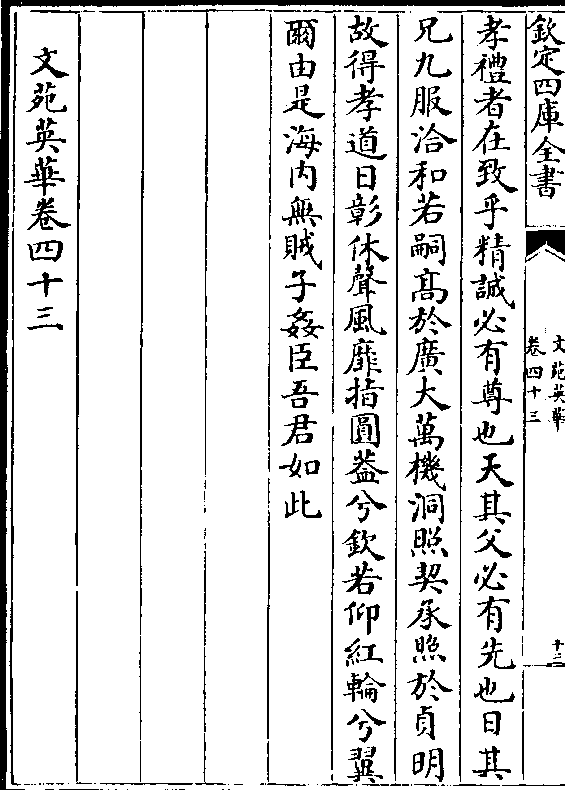 欽定四庫全書
文苑英華
卷四十三
十三
孝禮者在致乎精誠必有尊也天其父必有先也日其
兄九服洽和若嗣髙於廣大萬機洞照契承照於貞明
故得孝道日彰休聲風靡指圓葢兮欽若仰紅輪兮翼
爾由是海内無賊子姦臣吾君如此
文苑英華卷四十三